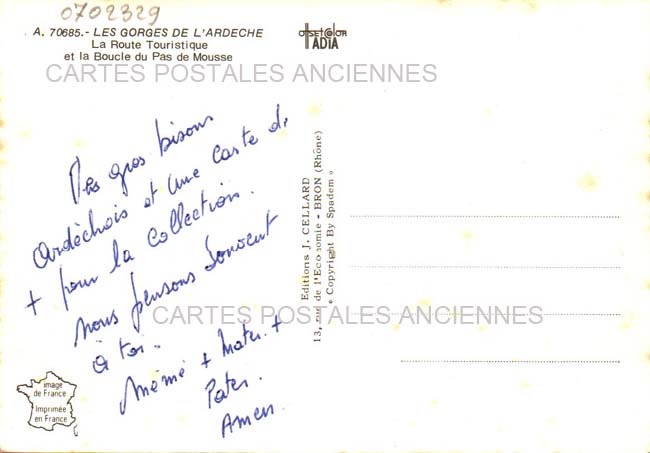 0702329
A. 70685.- LES GORGES DE L'ARDECHE
La Route Touristique
et la Boucle du Pas de Mousse
OFFSET COLOR
IADIA
CARTES POSTALES ANCIENNES
Des gros bisous
Ardéchois et une carte de
+ pour la collection.
nous pensons souvent
à toi.
Mémé + Mater. +
Pater.
Amen.
Editions J. CELLARD
13, rue de l'Economie - BRON (Rhône)
« Copyright By Spadem »
CARTES POSTALES ANCIENNES
image
de France
Imprimée
en France